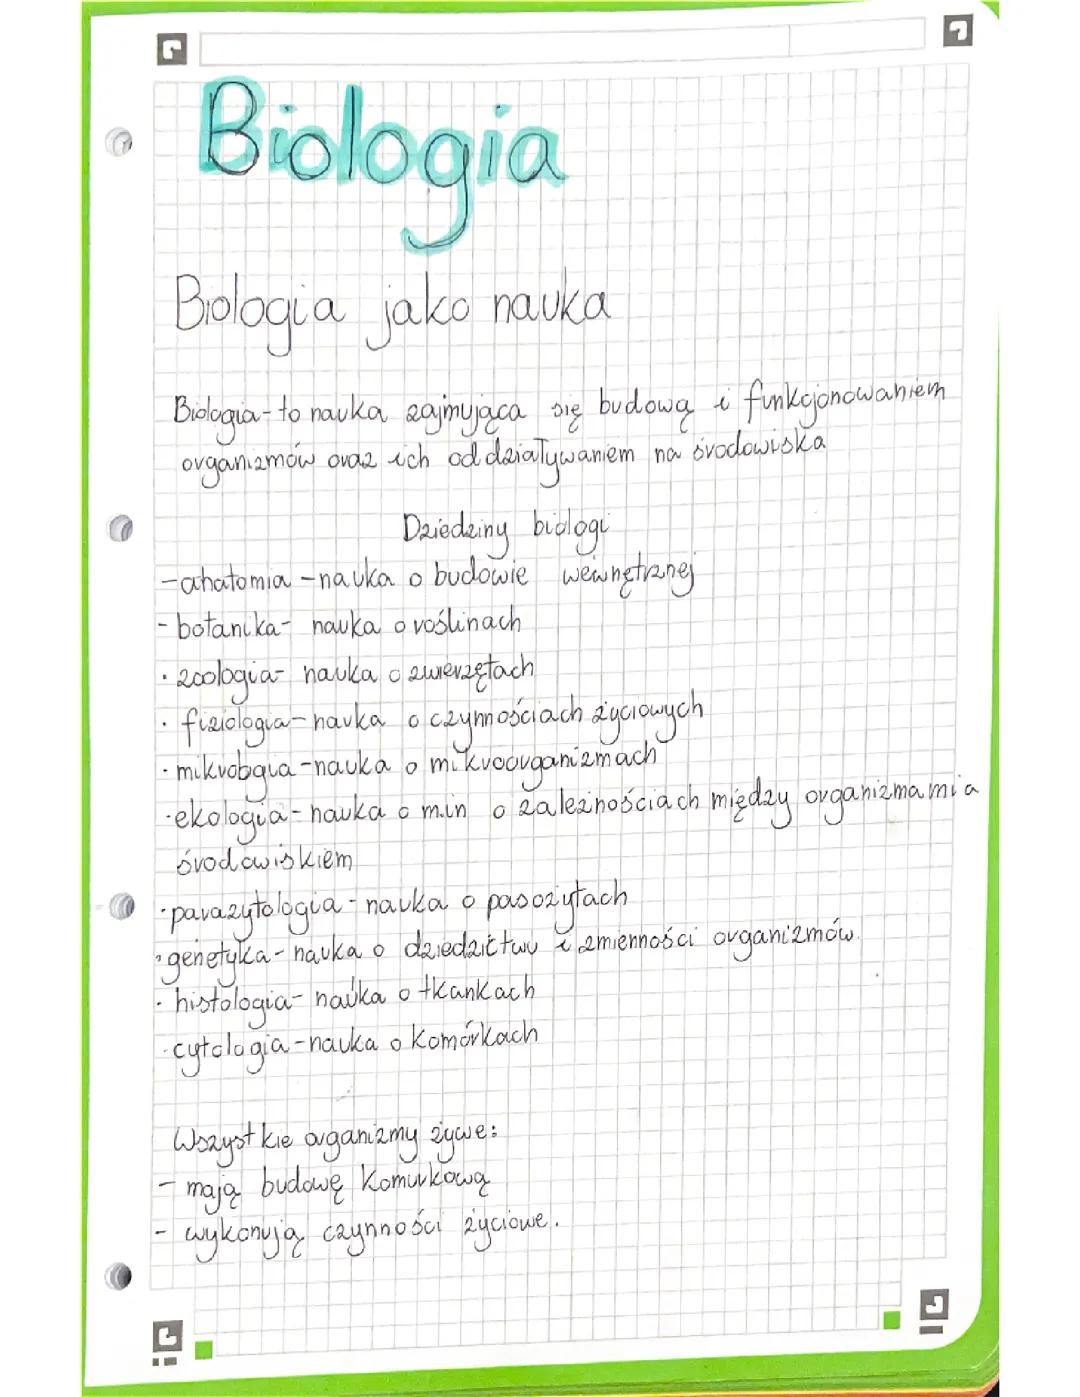 Biologia
Biologia jako nauka
Biologia - to nauka zajmująca się budową i funkcjonowaniem
organizmów oraz ich oddziaływaniem na środowiska
Dziedziny biologi
- anatomia - nauka o budowie wewnętrznej
- botanika - nauka o roślinach
· zoologia - nauka o zwierzętach
· fizjologia - nauka o czynnościach życiowych
· mikrobgia - nauka o mikroorganizmach
· ekologia - nauka o m.in o zależnościach między organizmami a
środowiskiem
· parazytologia - nauka o pasożytach
· genetyka - nauka o dziedzictwu i zmienności organizmów.
· histologia - nauka o tkankach
· cytologia - nauka o komórkach
Wszystkie organizmy żywe:
- mają budowę komurkową
- wykonują czynności życiowe.